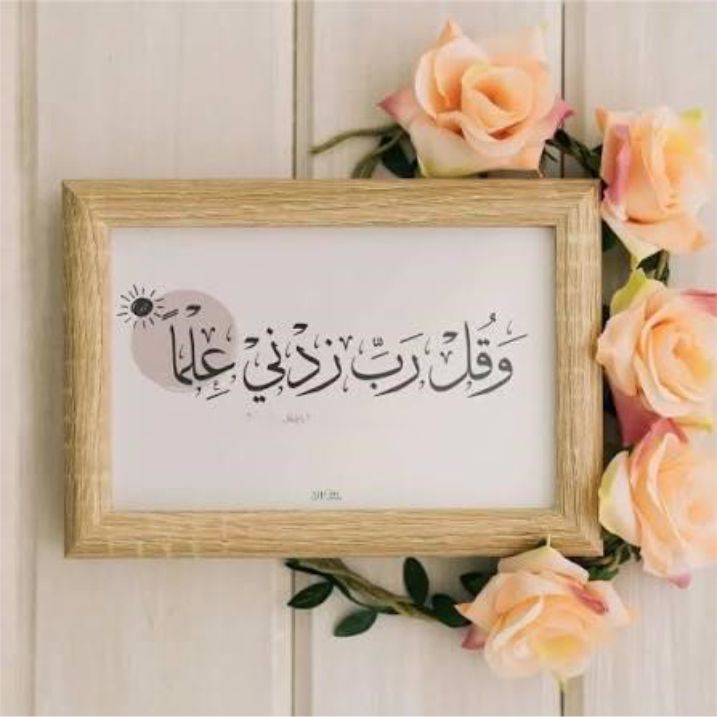 وَقُلْ رَبِّ زِدْنِيْ عِلْمَاً